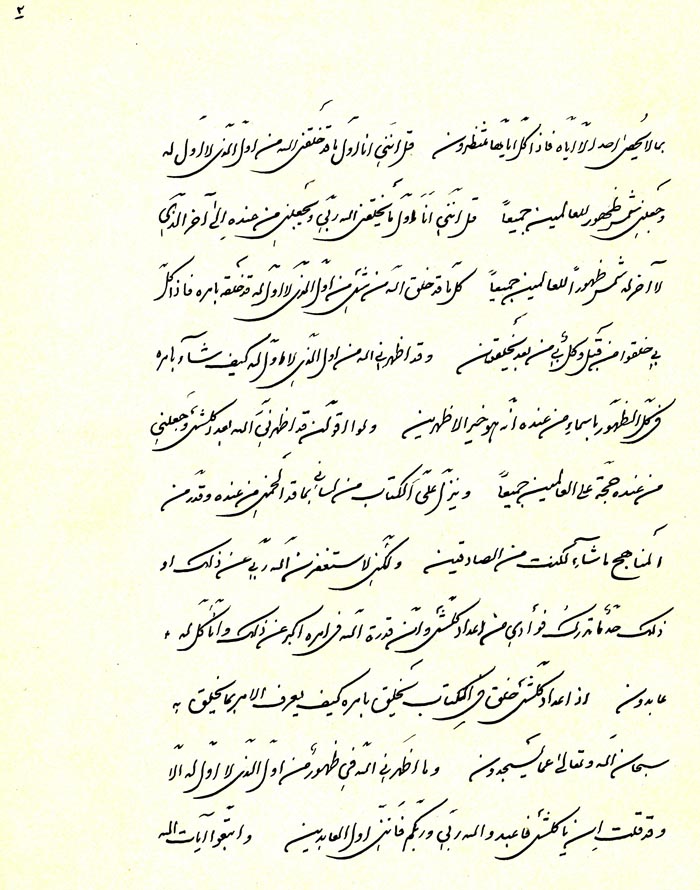 ٢
بما لا يحصى احد الا اياه فاذا كل اياها تنظرون قل انني انا اول ما قد خلقني الله من اول الذي لا اول له
وجعلني شمس ظهور للعالمين جميعاً قل انني انا اول ما يخلقني الله ربي ويجعلني من عنده الى آخر الذي
لا آخر له شمس ظهوراً للعالمين جميعاً كل ما قد خلق الله من شئ من اول الذي لا اول له قد خلقه بامره فاذا كل
بي خلقوا من قبل وكل بي من بعد يخلقون وقد اظهرني الله من اول الذي لا اول له كيف شاء بامره
في كل الظهور باسماء من عنده انه هو خير الاظهرين ولو اقولن قد اظهرني الله بعدد كلشئ وجعلني
من عنده حجة على العالمين جميعاً وينزل على الكتاب من لساني بما قد الهمني من عنده وقدر من
المناهج ما شاء لكنت من الصادقين ولكني لاستغفرن الله ربي عن ذلك او
ذلك حد ما تدرك فوادي من اعداد كلشئ وان قدرة الله في امره اكبر عن ذلك وانا كل له
عابدون اذ اعداد كلشئ خلق في الكتاب يخلق بامره كيف يعرف الامر بما يخلق به
سبحان الله وتعالى عما يسجدون وما اظهرني الله في ظهور من اول الذي لا اول له الا
وقد قلت ان يا كلشئ فاعبدوا الله ربي وربكم فانني اول العابدين واتبعوا آيات الله